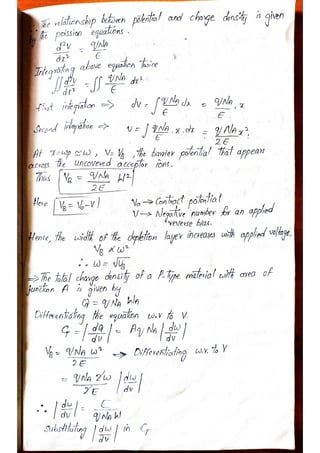 The relationship between potential and charge density is given
by poission equations.
d²V/dx² = qNA/ε
Integrating above equation twice
∬ d²V/dx² = ∬ qNA/ε dx²
first integration => dV = ∫ qNA/ε dx = qNA/ε . x
Second integration => V = ∫ qNA/ε . x . dx = qNAx²/2ε
At x=wp ≃ w, V=VB, the barrier potential that appears
across the uncovered acceptor ions.
Thus VB = qNA/2ε W²
Here VB = V0-V V0 → Contact potential
V → Negative number for an applied
reverse bias.
Hence, the width of the depletion layer increases with applied voltage.
VB ∝ w²
∴ w = √VB
=> The total charge density of a P-type material with area of
junction A is given by
Q = qNA WA
Differentiating the equation w.r to V.
CT = |dQ/dV| = Aq NA |dw/dV|
VB = qNA w²/2ε → Differentiating w.r. to V
= qNA 2w/2ε |dw/dv|
∴ |dw/dv| = ε/qNAW
Substituting |dw/dv| in CT